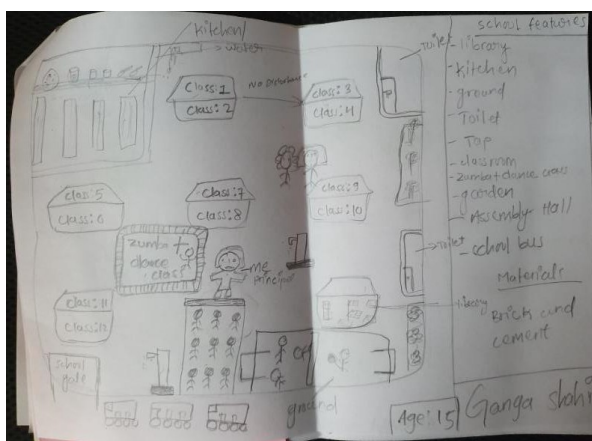 kitchen
water
Toilet
class:1
class:2
No Disturbance
class:3
class:4
class:5
class:6
class:7
class:8
class:9
class:10
zumba +
dance
class
me
principal
toilet
library
class:11
class:12
school
gate
ground
Age:15
school features
- library
- kitchen
- ground
- Toilet
- Tap
- classroom
- zumba+dance class
- gooden
Assembly Hall
- school bus
Materials
Brick and
cement
Ganga shahi